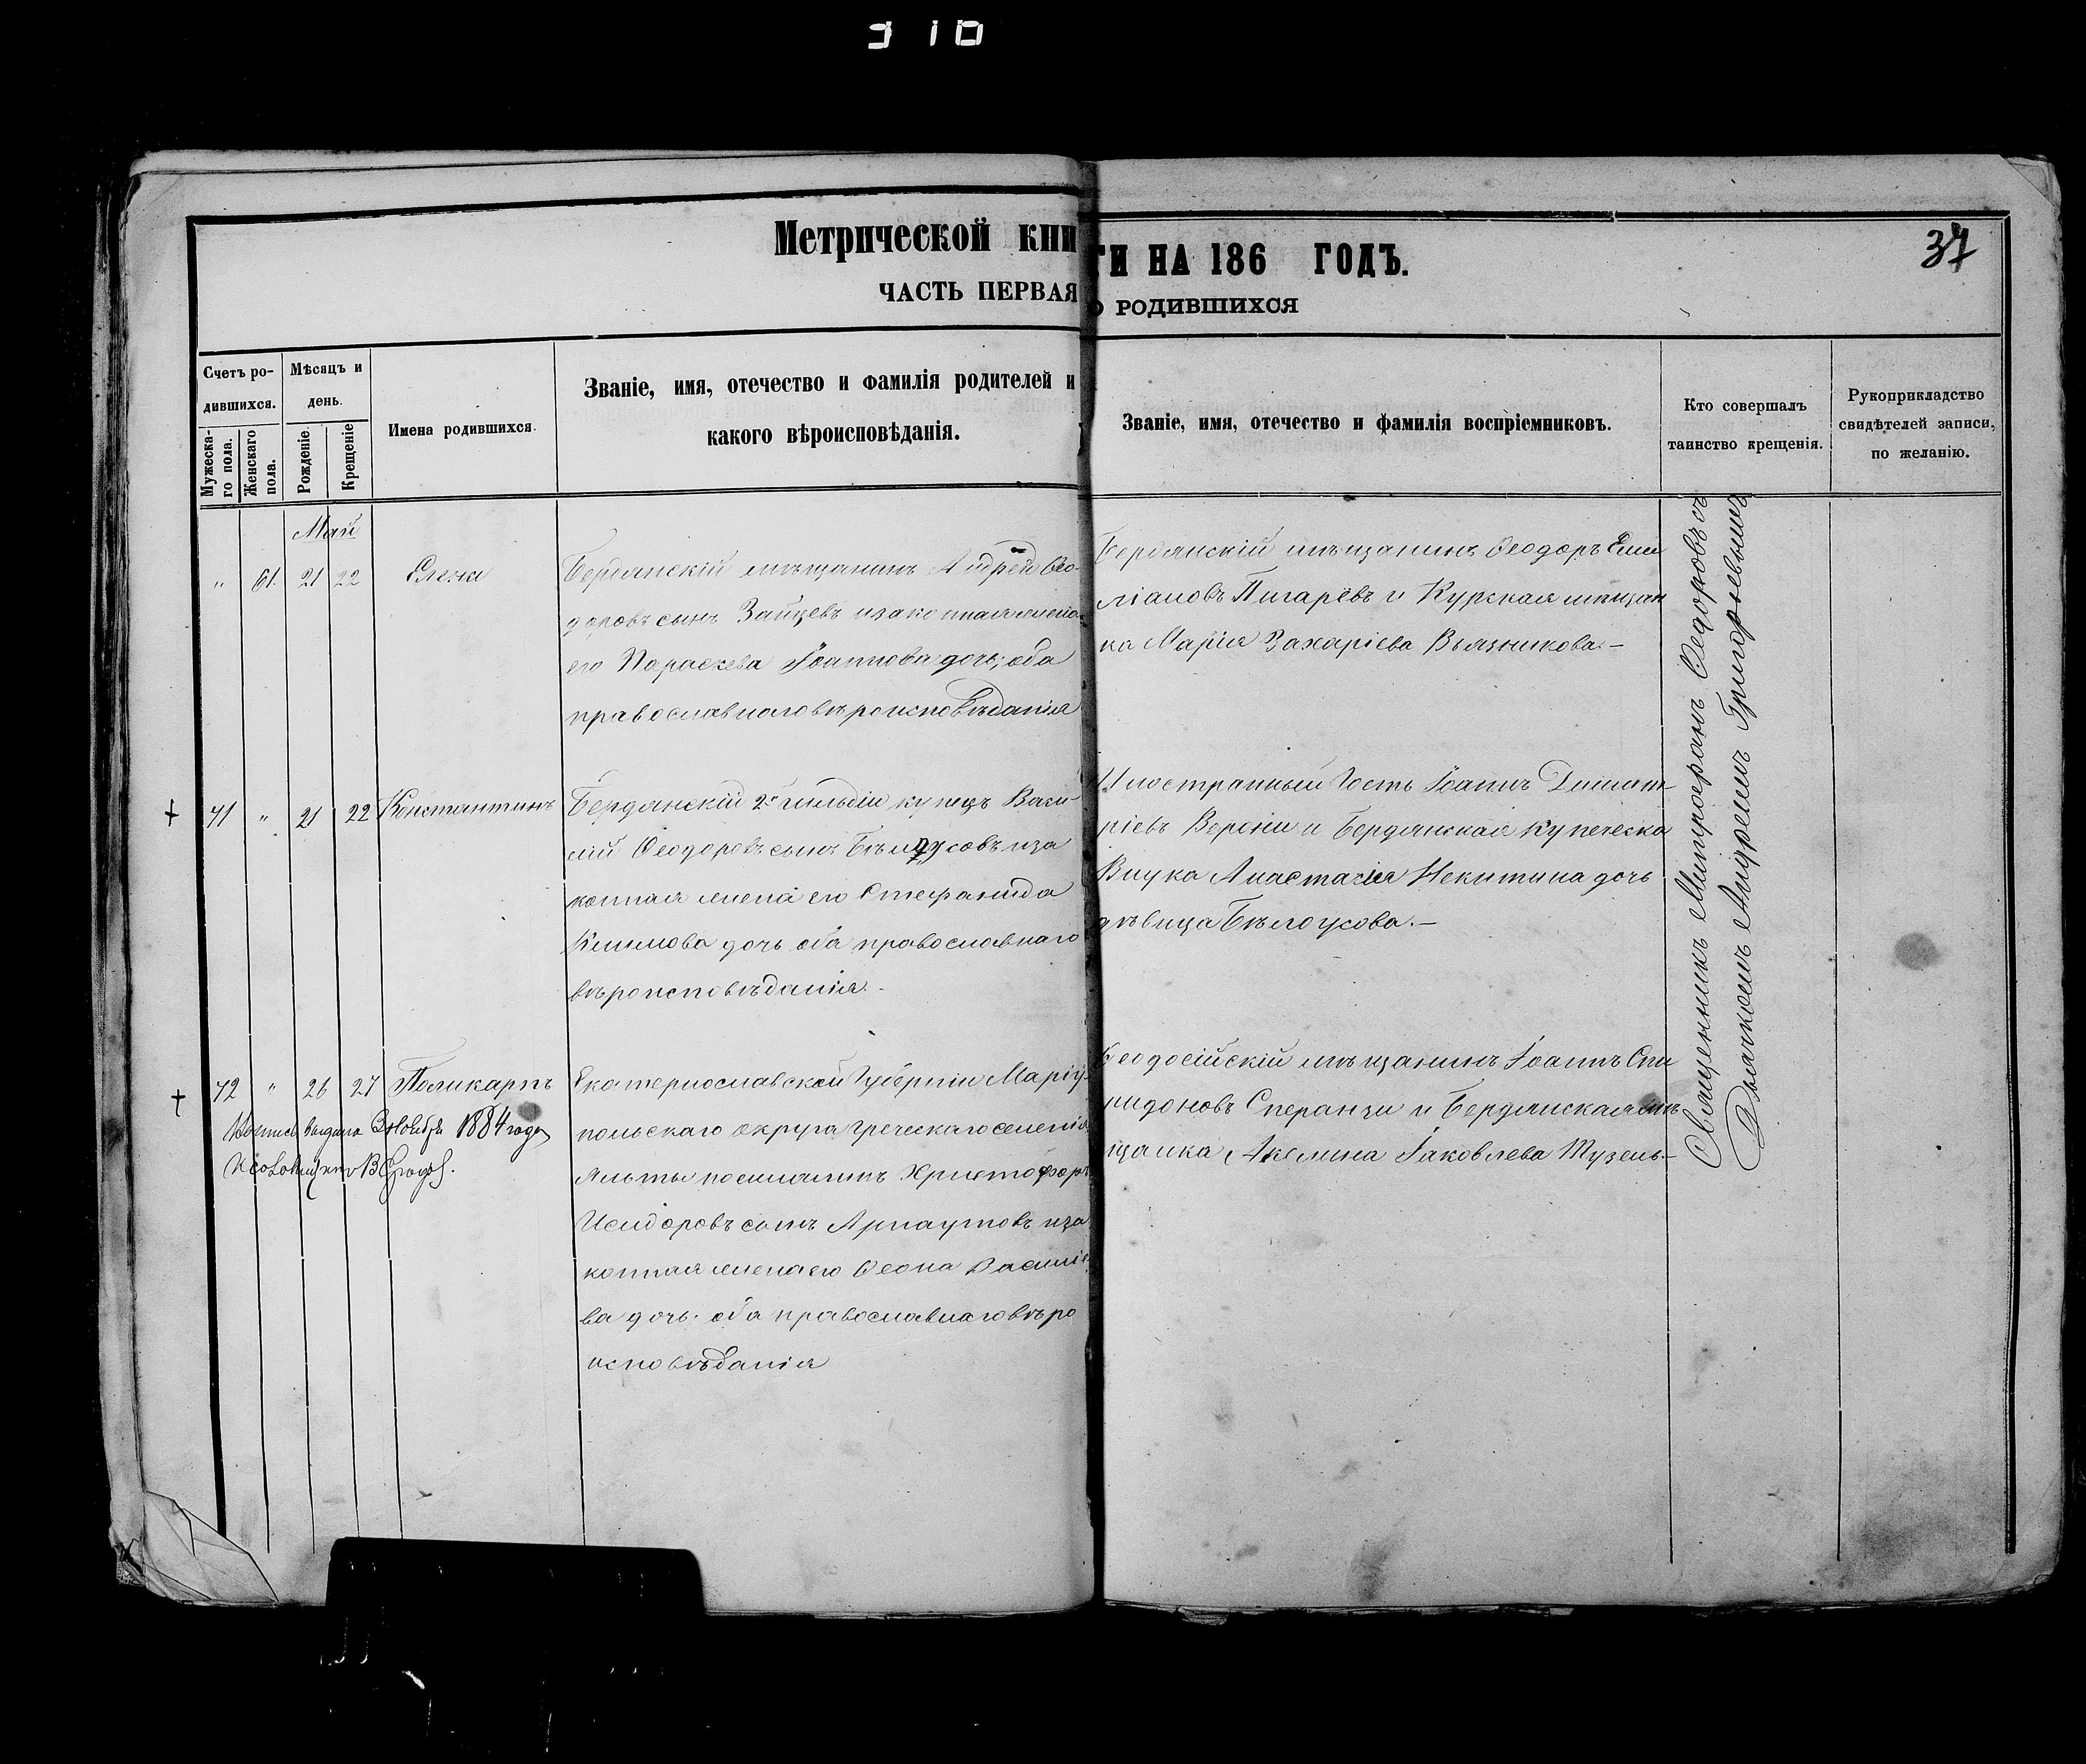 310
Метрической книги на 186 годъ.
37
Часть первая о родившихся
Счетъ ро-
дившихся.
Мѣсяцъ и
день.
Мужеска-
го пола.
Женскаго
пола.
Рожденіе.
Крещеніе
Имена родившихся.
Званіе, имя, отечество и фамилія родителей и
какого вѣроисповѣданія.
Званіе, имя, отечество и фамилія воспріемниковъ.
Кто совершалъ
таинство крещенія.
Рукоприкладство
свидѣтелей записи,
по желанію.
Май
„ 61. 21 22 Елена
Бердянскій мѣщанинъ Андрей Ѳео-
доровъ сынъ Зайцевъ и законная жена
его Параскева Іоаннова дочь; оба
православнаго вѣроисповѣданія
Бердянскій мѣщанинъ Ѳеодоръ Еми
ліановъ Пигарёвъ и Курская мѣщан
ка Марія Захаріева Вьязникова.—
+ 71 „ 21 22 Константинъ
Бердянскій 2й гильдіи купецъ Васи-
лій Ѳеодоровъ сынъ Бѣлоусовъ и за
конная жена его Стефанида
Климова дочь оба православнаго
вѣроисповѣданія.-
Иностранный Гость Іоаннъ Димит-
ріевъ Верони и Бердянская купеческа
Внука Анастасія Некитина дочь
дѣвица Бѣлоусова.—
+ 72 „ 26 27 Поликарпъ
выдана 1884 года
Екатеринославской Губерніи Маріу-
польскаго округа греческаго селенія
Ялты поселянинъ Христофоръ
Исидоровъ сынъ Арнаутовъ и за
конная жена его Ѳеона Василіе
ва дочь. оба православнаго вѣро
исповѣданія
Ѳеодосійскій мѣщанинъ Іоаннъ Спи
ридоновъ Сперанзи и Бердянская мѣ
щанка Акелина Іаковлева Тузель.—
Священникъ Митрофанъ Ѳедоровъ съ
Дьячкомъ Андреемъ Григорьевымъ